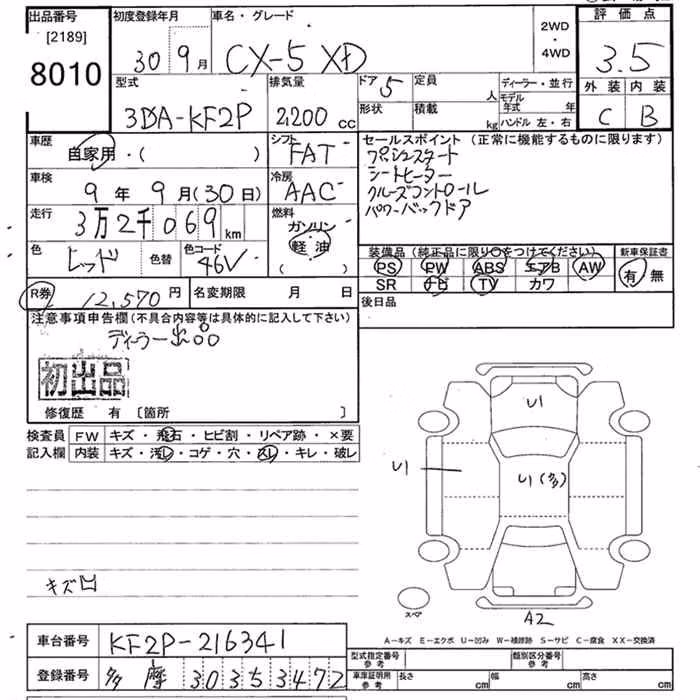 出品番号
[2189]
8010
初度登録年月
30 9月
車名・グレード
CX-5 XD
2WD
・
4WD
評価点
3.5
外装 内装
C B
型式
3DA-KF2P
排気量
2,200 cc
ドア 5
形状
定員 人
積載 kg
ディーラー・並行
モデル年式 年
ハンドル 左・右
車歴
自家用・( )
シフト
FAT
車検
9年9月(30日)
冷房
AAC
走行
3万2千069km
燃料
ガソリン
軽油
( )
色
レッド
色替
色コード
46V
セールスポイント(正常に機能するものに限ります)
プッシュスタート
シートヒーター
クルーズコントロール
パワーバックドア
装備品(純正品に限り○をつけてください)
PS PW ABS エアB AW
SR ナビ TV カワ
新車保証書
有 無
後日品
R券
12,570円
名変期限 月 日
注意事項申告欄(不具合内容等は具体的に記入して下さい)
ディーラー出品
初出品
修復歴 有 [箇所 ]
検査員
記入欄
FW キズ・飛石・ヒビ割・リペア跡・×要
内装 キズ・汚レ・コゲ・穴・スレ・キレ・破レ
キズ凹
U1
U1
U1(多)
スペア
A2
A-キズ E-エクボ U-凹み W-補修跡 S-サビ C-腐食 XX-交換済
車台番号
KF2P-216341
登録番号
多摩 303 5 3472
型式指定番号
参考
類別区分番号
参考
車庫証明用
参考
長さ cm
幅 cm
高さ cm